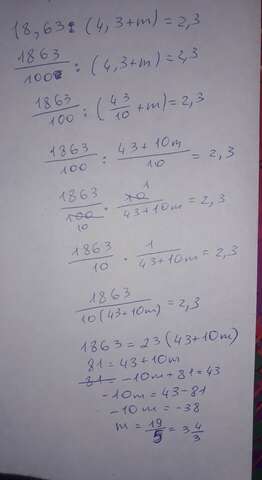 18,63 : (4,3+m) = 2,3
1863/100 : (4,3+m) = 2,3
1863/100 : (43/10 + m) = 2,3
1863/100 : 43+10m/10 = 2,3
1863/100 10 · 10 1/43+10m = 2,3
1863/10 · 1/43+10m = 2,3
1863/10(43+10m) = 2,3
1863 = 23(43+10m)
81 = 43+10m
81 = -10m + 81 = 43
-10m = 43-81
-10m = -38
m = 19/5 = 3 4/3